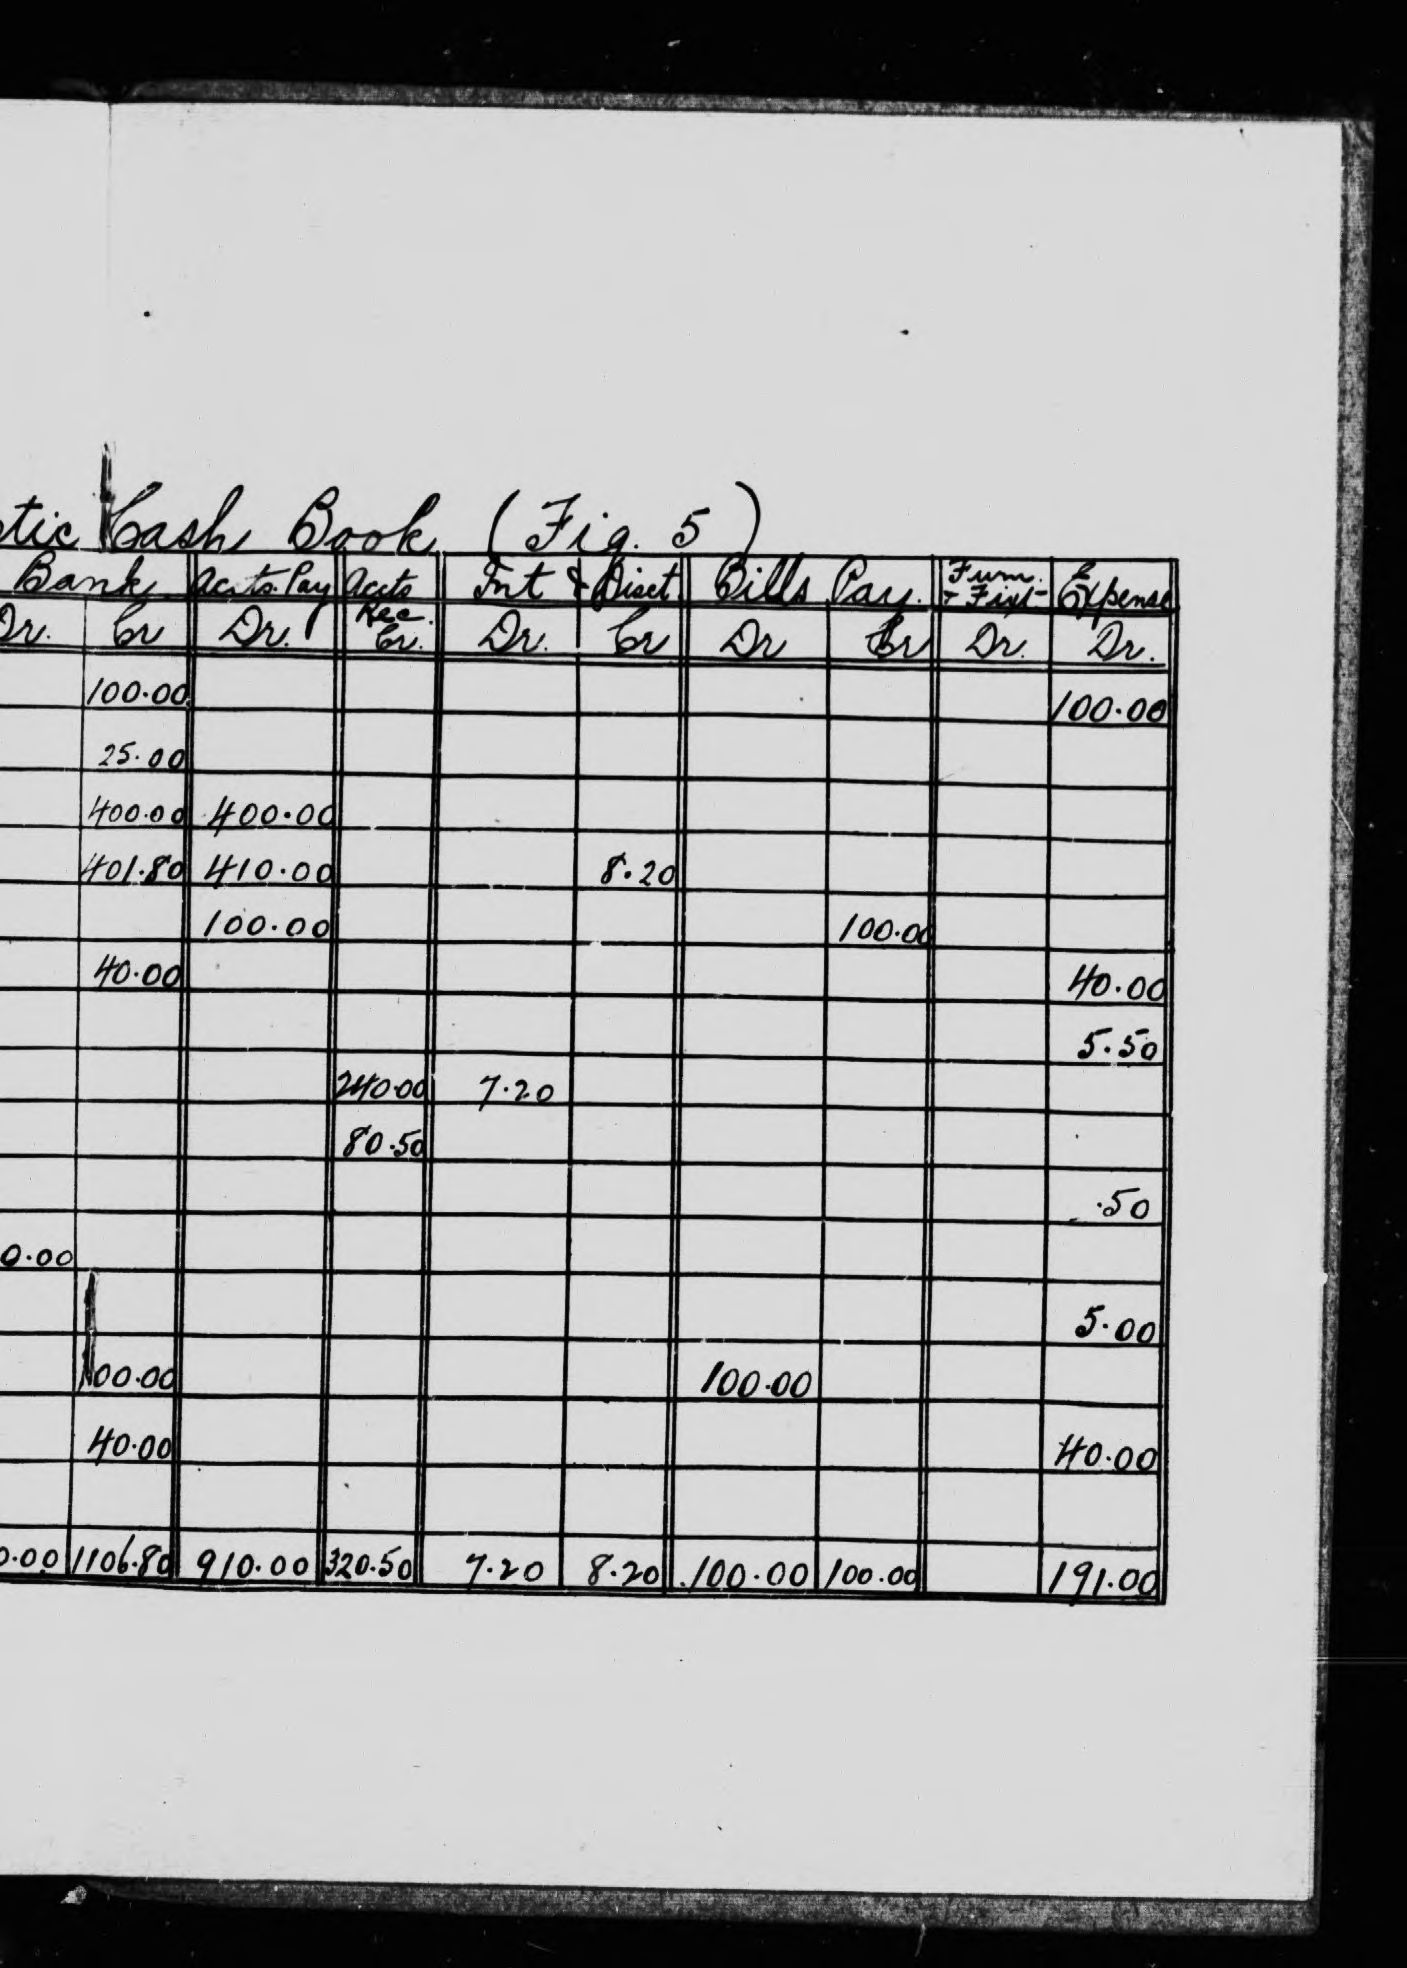 tic Cash Book (Fig. 5)
Bank Accts. Pay Accts Rec. Int & Disct Bills Pay. Furn. & Fixt Expense
Dr. Cr Dr. Cr. Dr. Cr Dr Cr Dr. Dr.
100.00 100.00
25.00
400.00 400.00
401.80 410.00 8.20
100.00 100.00
40.00 40.00
5.50
240.00 7.20
80.50
.50
0.00
5.00
100.00 100.00
40.00 40.00
0.00 1106.80 910.00 320.50 7.20 8.20 100.00 100.00 191.00